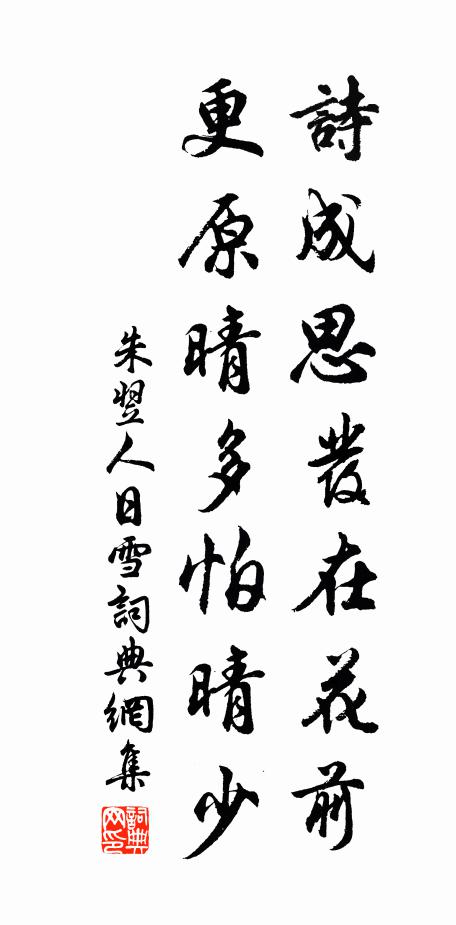 詩成思發在花前
更原晴多怕晴少
朱翌人日雪詞典網集
詞典
网印